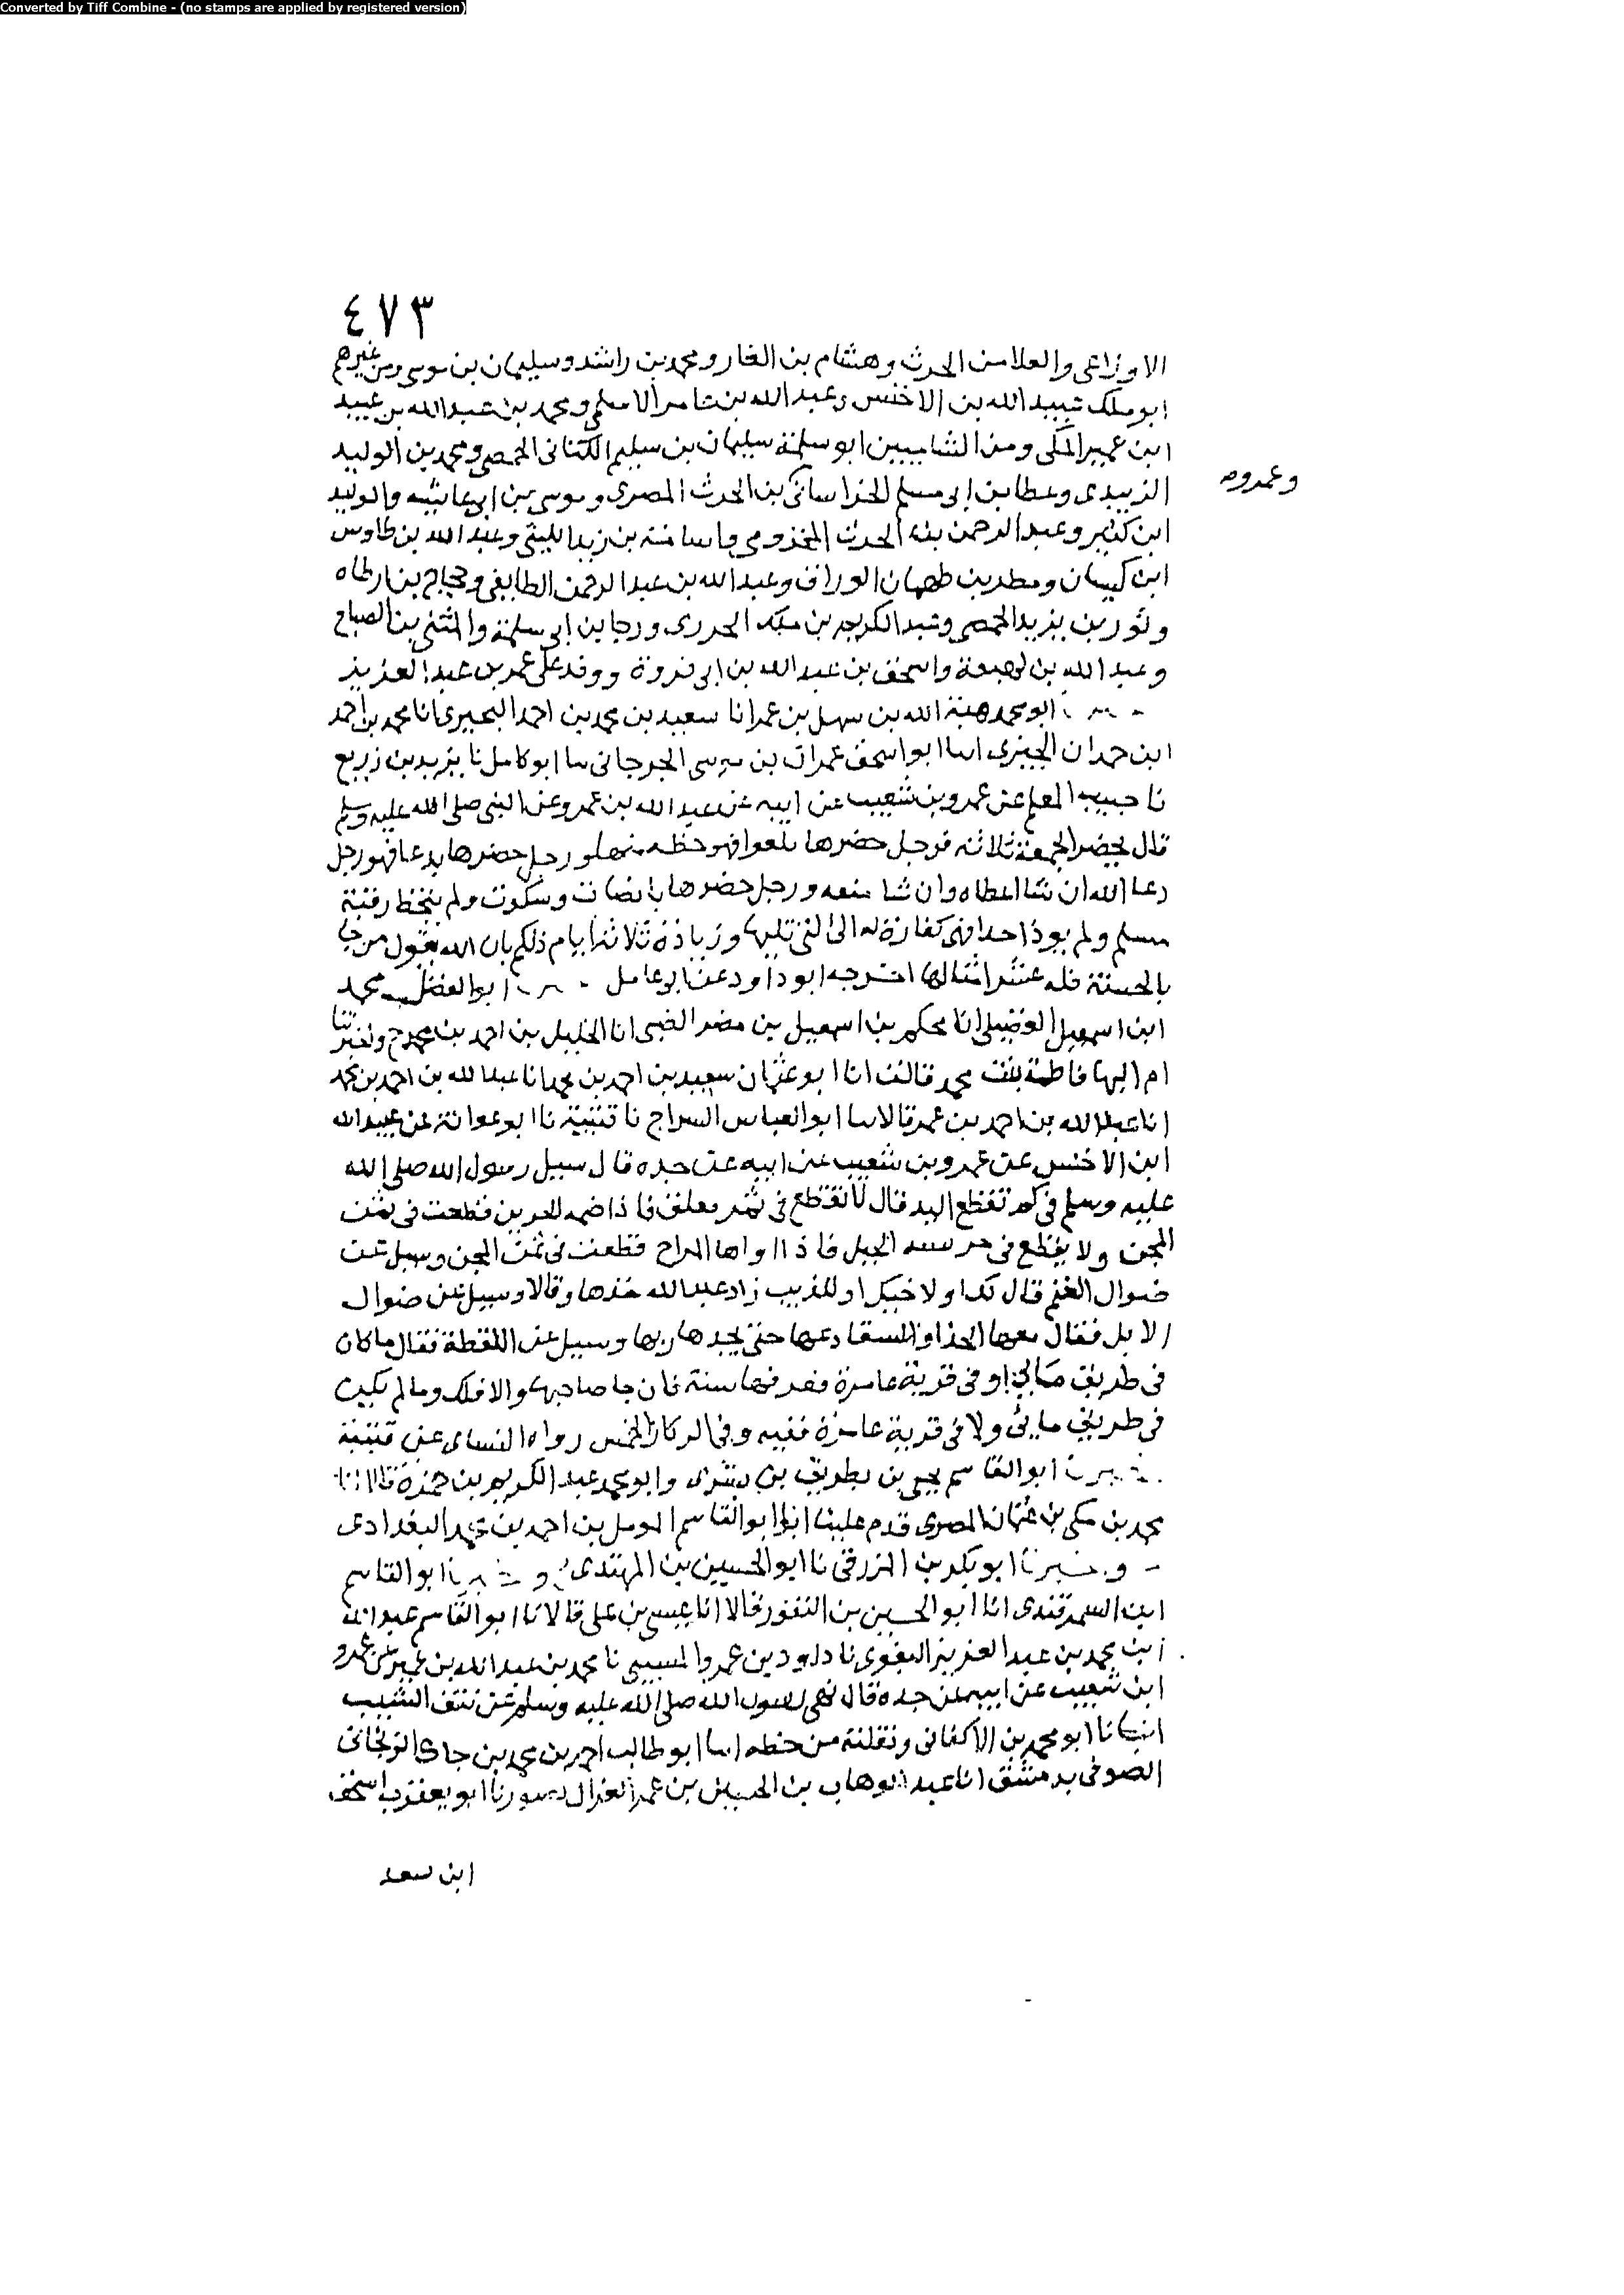 Converted by Tiff Combine - (no stamps are applied by registered version)
٤٧٣
الاوزاعى والعلا بن الحرث وهشام بن الغار ومحمد بن راشد وسليمان بن موسى ومن غيرهم
ابو ملك عبيد الله بن الاخنس وعبد الله بن عامر الاسلمى ومحمد بن عبد الله بن عبيد
ابن عمير المكى ومن الشاميين ابو سلمة سليمان بن سليم الكنانى الحمصى ومحمد بن الوليد
الزبيدى وعطا بن ابى مسلم الخراسانى بن الحرث المصرى وموسى بن ابى عايشه والوليد
وعمرو
ابن كثير وعبد الرحمن بن الحرث المخزومى واسامة بن زيد الليثى وعبد الله بن طاوس
ابن كيسان ومطر بن طهمان الوراق وعبد الله بن عبد الرحمن الطايفى وحجاج بن ارطاه
وثور بن يزيد الحمصى وعبد الكريم بن الجزرى ورجا بن ابى سلمة والمثنى بن الصباح
وعبد الله بن لهيعة واسحق بن عبد الله بن ابى فروة ووفد على عمر بن عبد العزيز
ابو محمد هبة الله بن سهل بن عمر انا سعيد بن محمد بن احمد البحيرى انا محمد بن احمد
ابن حمدان الحيرى ابا ابو اسحق عمران بن موسى الجرجانى سا ابو كامل نا يزيد بن زريع
نا حبيب المعلم عن عمرو بن شعيب عن ابيه عن عبد الله بن عمرو عن النبى صلى الله عليه وسلم
قال يحضر الجمعة ثلاثه فرجل حضرها يلغو فهو حظه منها ورجل حضرها يدعا فهو رجل
دعا الله ان شا اعطاه وان شا منعه ورجل حضرها بانصات وسكوت ولم يتخط رقبة
مسلم ولم يوذ احدا فهى كفارة له الى التى تليها وزيادة ثلاثة ايام ذلكم بان الله يقول من جا
بالحسنة فله عشر امثالها اخرجه ابو داود عن ابو عامل ابو الفضل محمد
ابن اسمعيل الفضيلى انا محلم بن اسمعيل بن مضر الضبى انا الخليل بن احمد بن
ام البها فاطمة بنت محمد قالت انا ابو عثمان سعيد بن احمد بن محمد انا عبد الله بن احمد بن محمد
انا عبد الله بن احمد بن عمر قالا سا ابو العباس السراج نا قتيبة نا ابو عوانة عن عبيد الله
ابن الاخنس عن عمرو بن شعيب عن ابيه عن جده قال سيل رسول الله صلى الله
عليه وسلم فى كم تقطع اليد فقال لا تقطع فى ثمر معلق فاذا ضمه الجرين قطعت فى ثمن
المجن ولا يقطع فى حريسه الجبل فاذا اواها المراح قطعت فى ثمن المجن وسيل عن
ضوال الغنم قال لك او لاخيك او للذيب زاد عبد الله خذها وقالا وسيل عن ضوال
الابل فقال معها الحذا والسقا دعها حتى يجدها ربها وسيل عن اللقطة فقال ما كان
فى طريق ماتى او فى قرية عامرة فعرفها سنة فان جا صاحبها والا فلك وما لم يكن
فى طريق ماتى ولا فى قرية عامرة ففيه وفى الركاز الخمس رواه النساى عن قتيبة
ابو القاسم يحيى بن بطريق بن بشرى وابو محمد عبد الكريم بن حمزة قالا انا
محمد بن مكى بن عثمان المصرى قدم علينا ابو القاسم المومل بن احمد بن محمد البغدادى
و ابو بكر بن المزرقى نا ابو الحسين بن المهتدى و ابو القاسم
ابن السمرقندى انا ابو الحسين بن النقور قالا انا عيسى بن على قالا نا ابو القاسم عبد الله
ابن محمد بن عبد العزيز البغوى نا داود بن عمرو المسيبى نا محمد بن عبد الله بن عمير عن عمرو
ابن شعيب عن ابيه عن جده قال نهى رسول الله صلى الله عليه وسلم عن نتف الشيب
انبانا ابو محمد بن الاكفانى ونقلته من خطه ابا ابو طالب احمد بن محمد بن
الصوفى بدمشق انا عبد الوهاب بن الحسين بن عمر الغزال بصور نا ابو يعقوب اسحق
ابن سعد